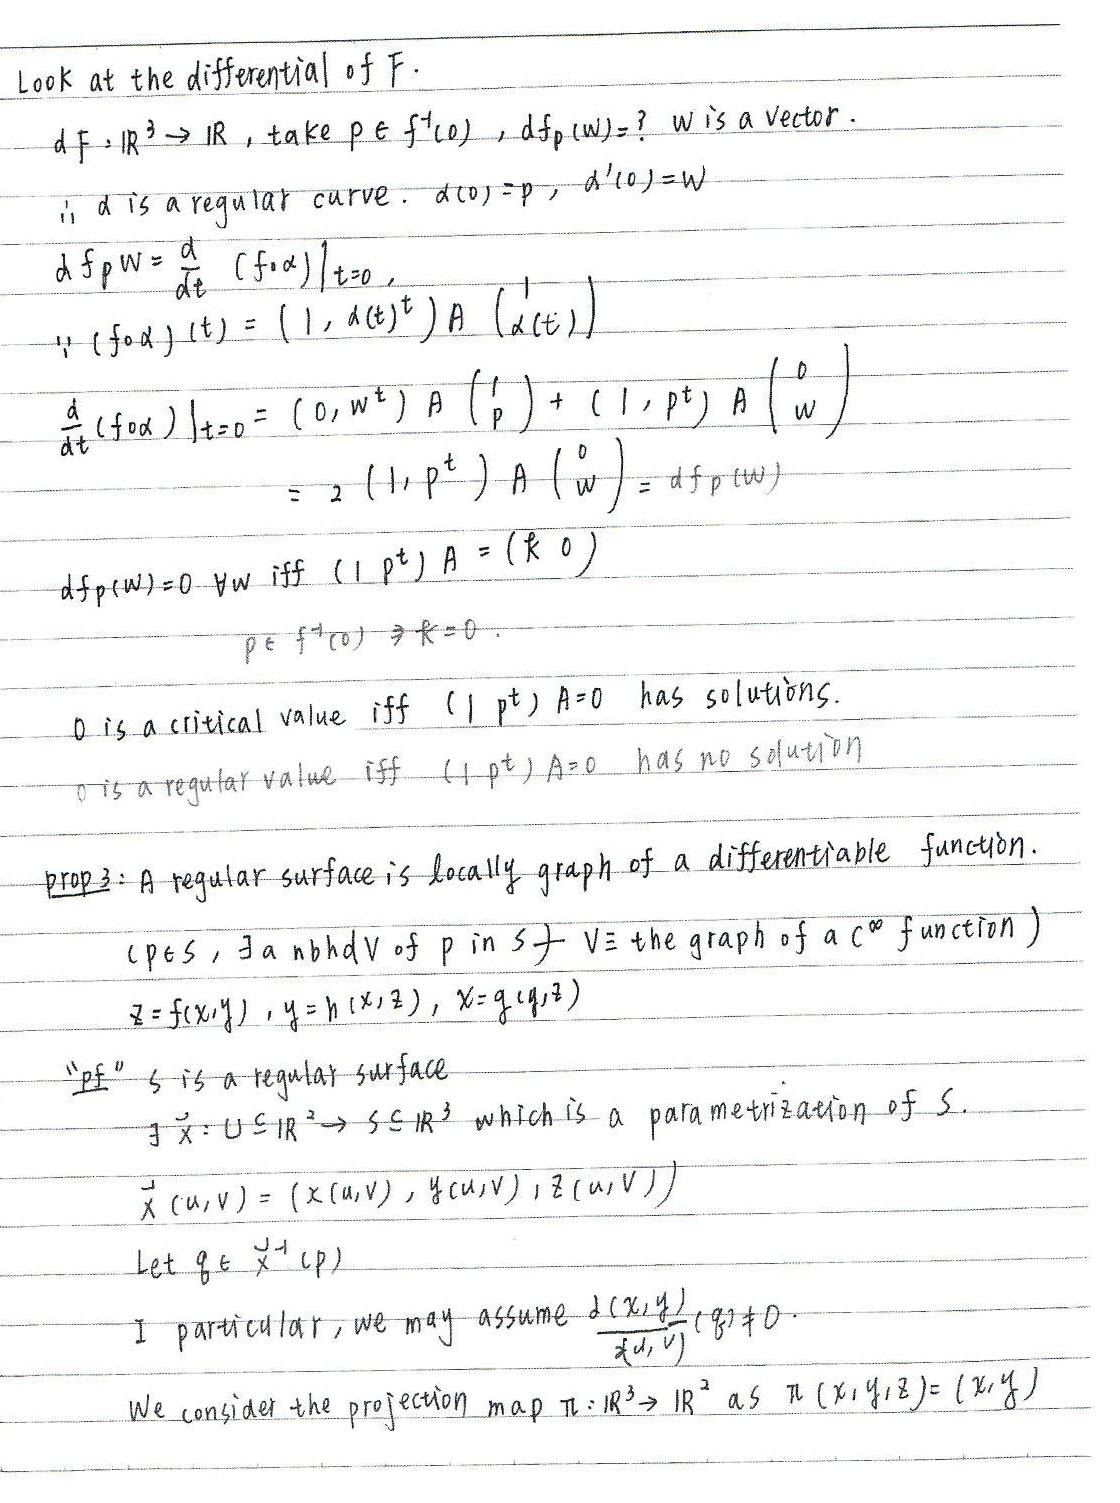 Look at the differential of F.
dF : ℝ³ → ℝ , take p ∈ f⁻¹(0) , dfₚ(w)=? w is a vector.
∴ α is a regular curve. α(0)=p , α'(0)=w
dfₚw = d/dt (f∘α)|t=0 ,
∵ (f∘α)(t) = (1, α(t)ᵗ) A (1 α(t))
d/dt (f∘α)|t=0 = (0, wᵗ) A (1 p) + (1, pᵗ) A (0 w)
= 2 (1, pᵗ) A (0 w) = dfₚ(w)
dfₚ(w)=0 ∀w iff (1 pᵗ) A = (k 0)
p ∈ f⁻¹(0) ⇒ k=0.
0 is a critical value iff (1 pᵗ) A=0 has solutions.
0 is a regular value iff (1 pᵗ) A=0 has no solution
prop 3: A regular surface is locally graph of a differentiable function.
(p∈S, ∃ a nbhd V of p in S ∋ V ≡ the graph of a C^∞ function)
z=f(x,y) , y=h(x,z), x=g(y,z)
"pf" S is a regular surface
∃ x⃗ : U ⊆ ℝ² → S ⊆ ℝ³ which is a parametrization of S.
x⃗ (u,v) = (x(u,v) , y(u,v) , z(u,v))
Let q ∈ x⃗⁻¹(p)
I particular, we may assume ∂(x,y)/∂(u,v) (q) ≠ 0.
We consider the projection map π : ℝ³ → ℝ² as π(x,y,z)=(x,y)